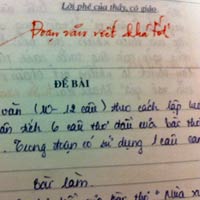 Lời phê của thầy, cô giáo
Đoạn văn viết khá tốt
ĐỀ BÀI
văn (10- 12 câu) theo cách lập luận
tích 6 câu thơ đầu của bài thơ
. Trong đoạn có sử dụng 1 câu
Bài làm.